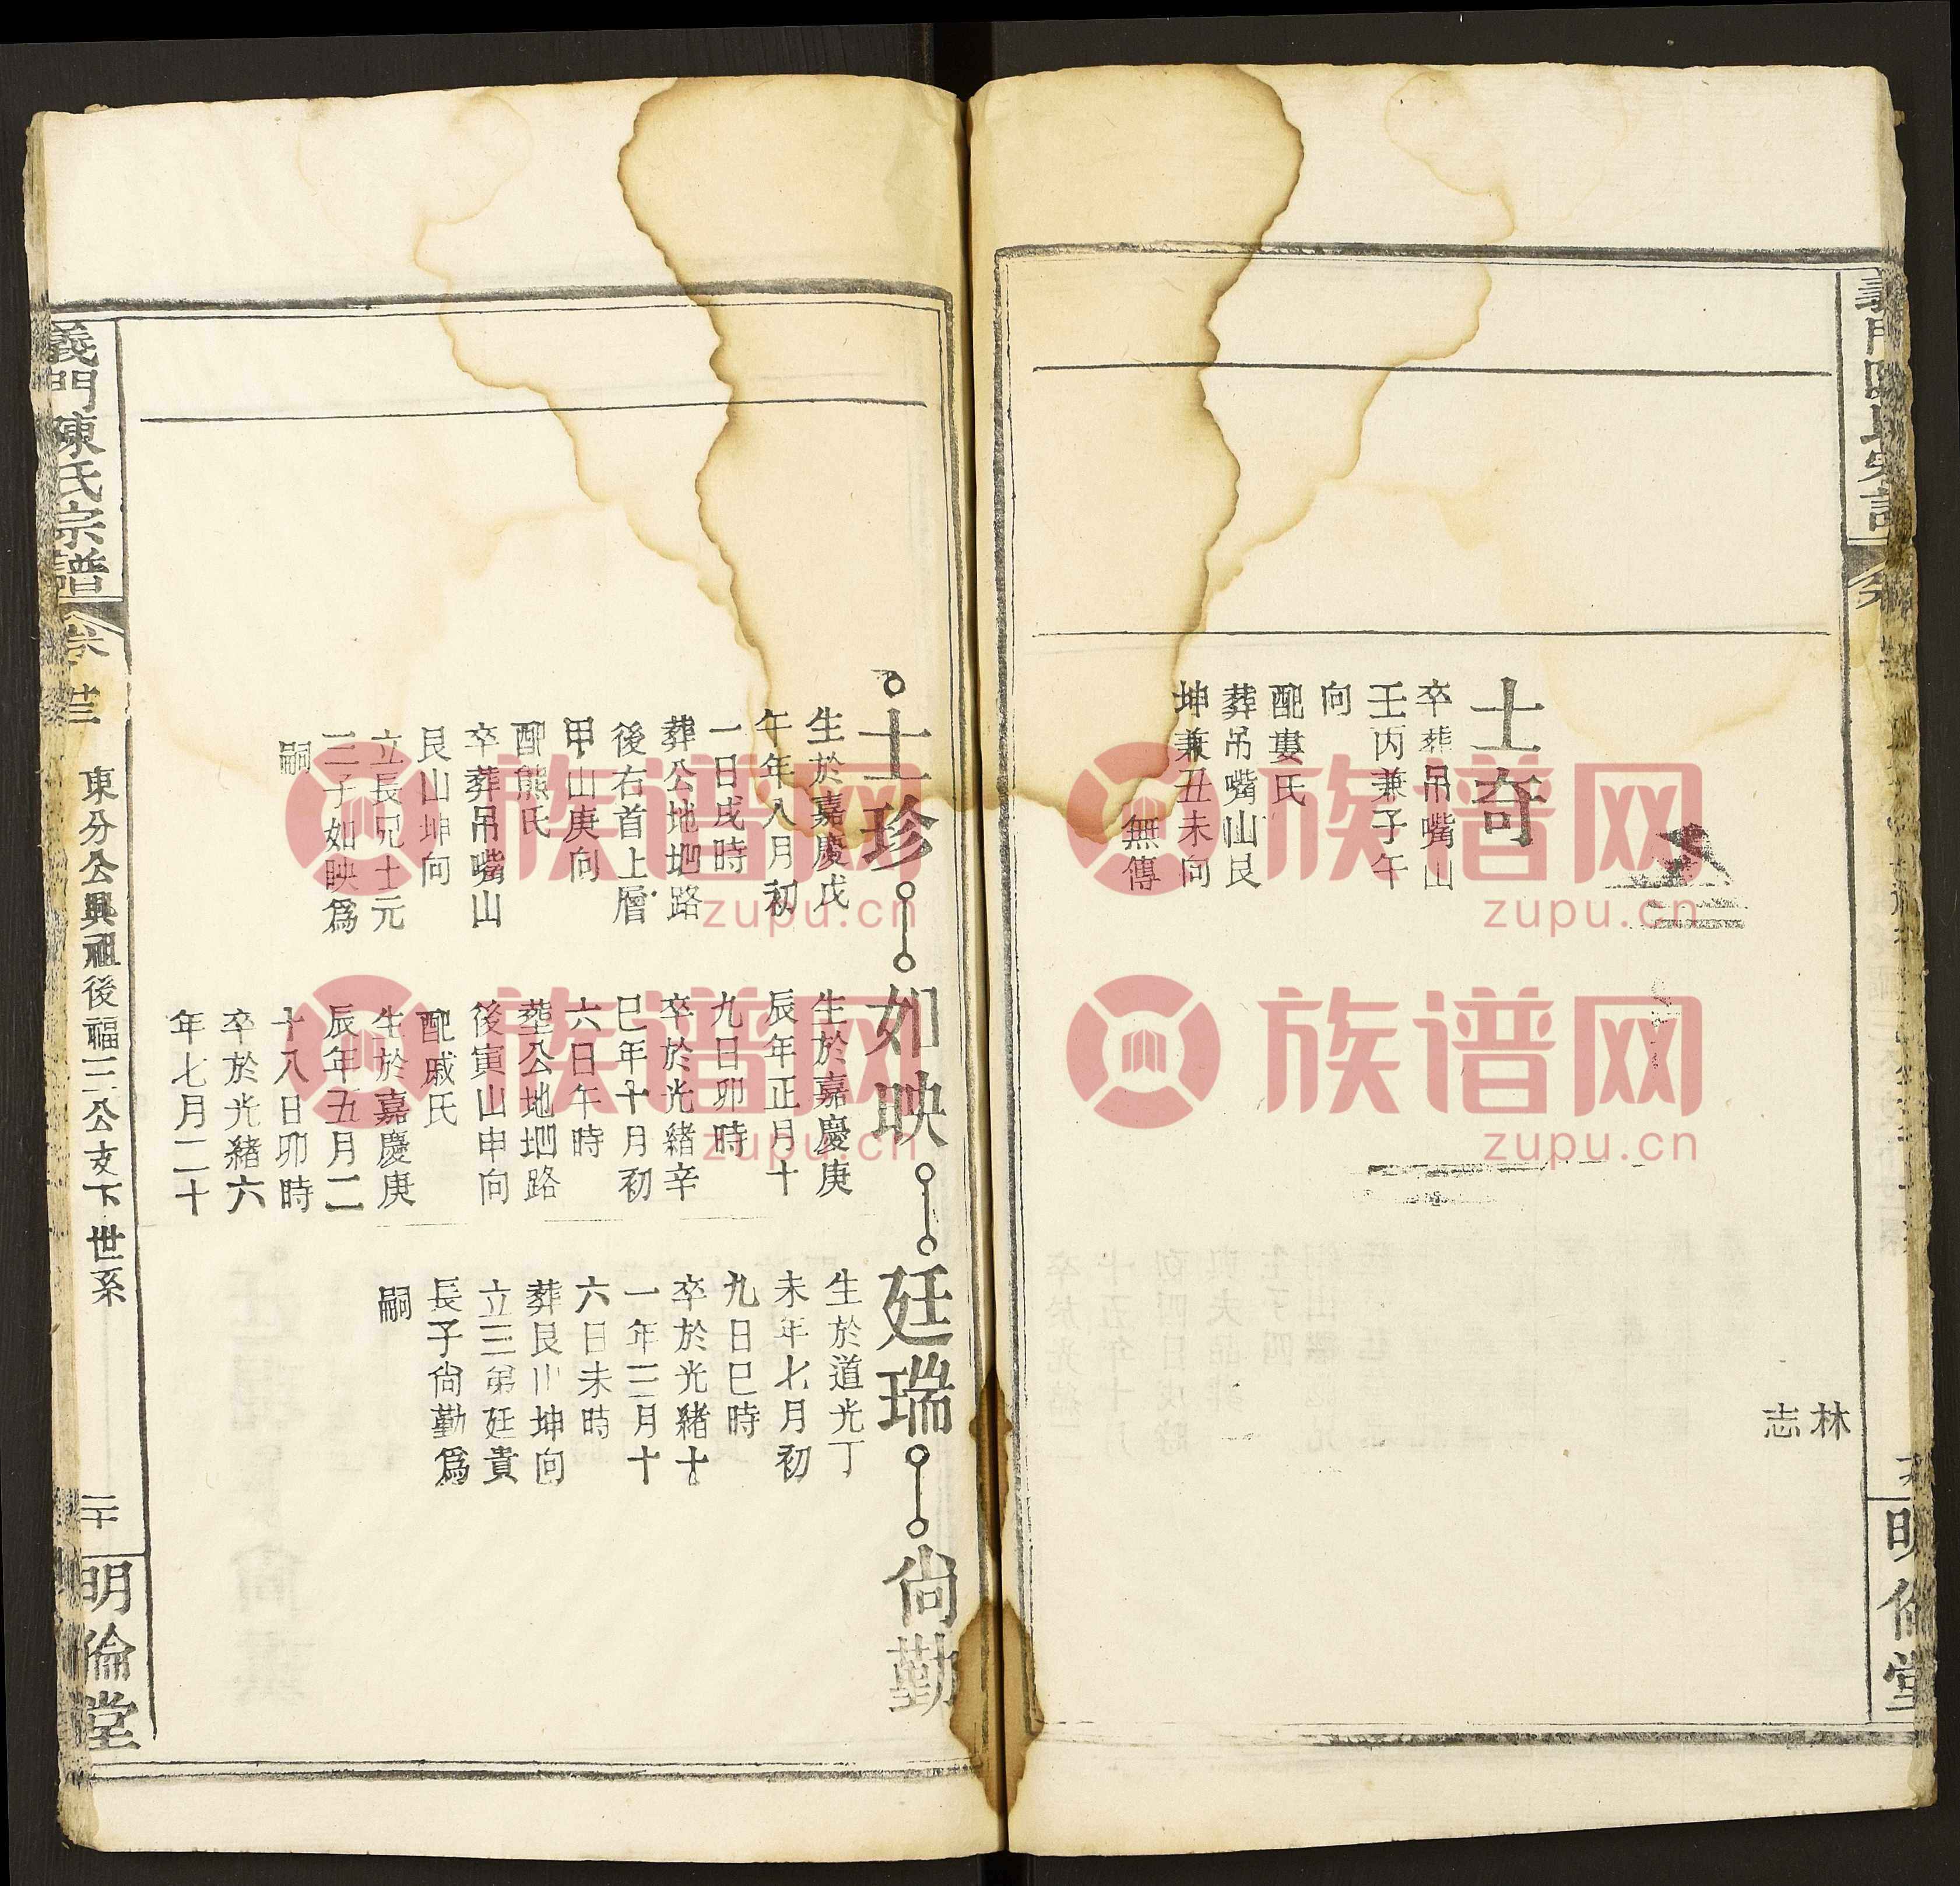 林
志
士奇
卒葬吊嘴山
壬丙兼子午
向
配婁氏
葬吊嘴山艮
坤兼丑未向
無傳
明倫堂
士珍
生於嘉慶戊
午年八月初
一日戌時
葬公地堰路
後右首上層
甲山庚向
配熊氏
卒葬吊嘴山
艮山坤向
立長兄士元
三子如映爲
嗣
如映
生於嘉慶庚
辰年正月十
九日卯時
卒於光緒辛
巳年十月初
六日午時
葬公地堰路
後寅山申向
配戚氏
生於嘉慶庚
辰年五月二
十八日卯時
卒於光緒六
年七月二十
廷瑞
生於道光丁
未年七月初
九日巳時
卒於光緒十
一年三月十
六日未時
葬艮山坤向
立三弟廷貴
長子尙勤爲
嗣
尙勤
義門陳氏宗譜
卷
東分公興祖後福三公支下世系
二十
明倫堂
族谱网
zupu.cn
族谱网
zupu.cn
族谱网
zupu.cn
族谱网
zupu.cn